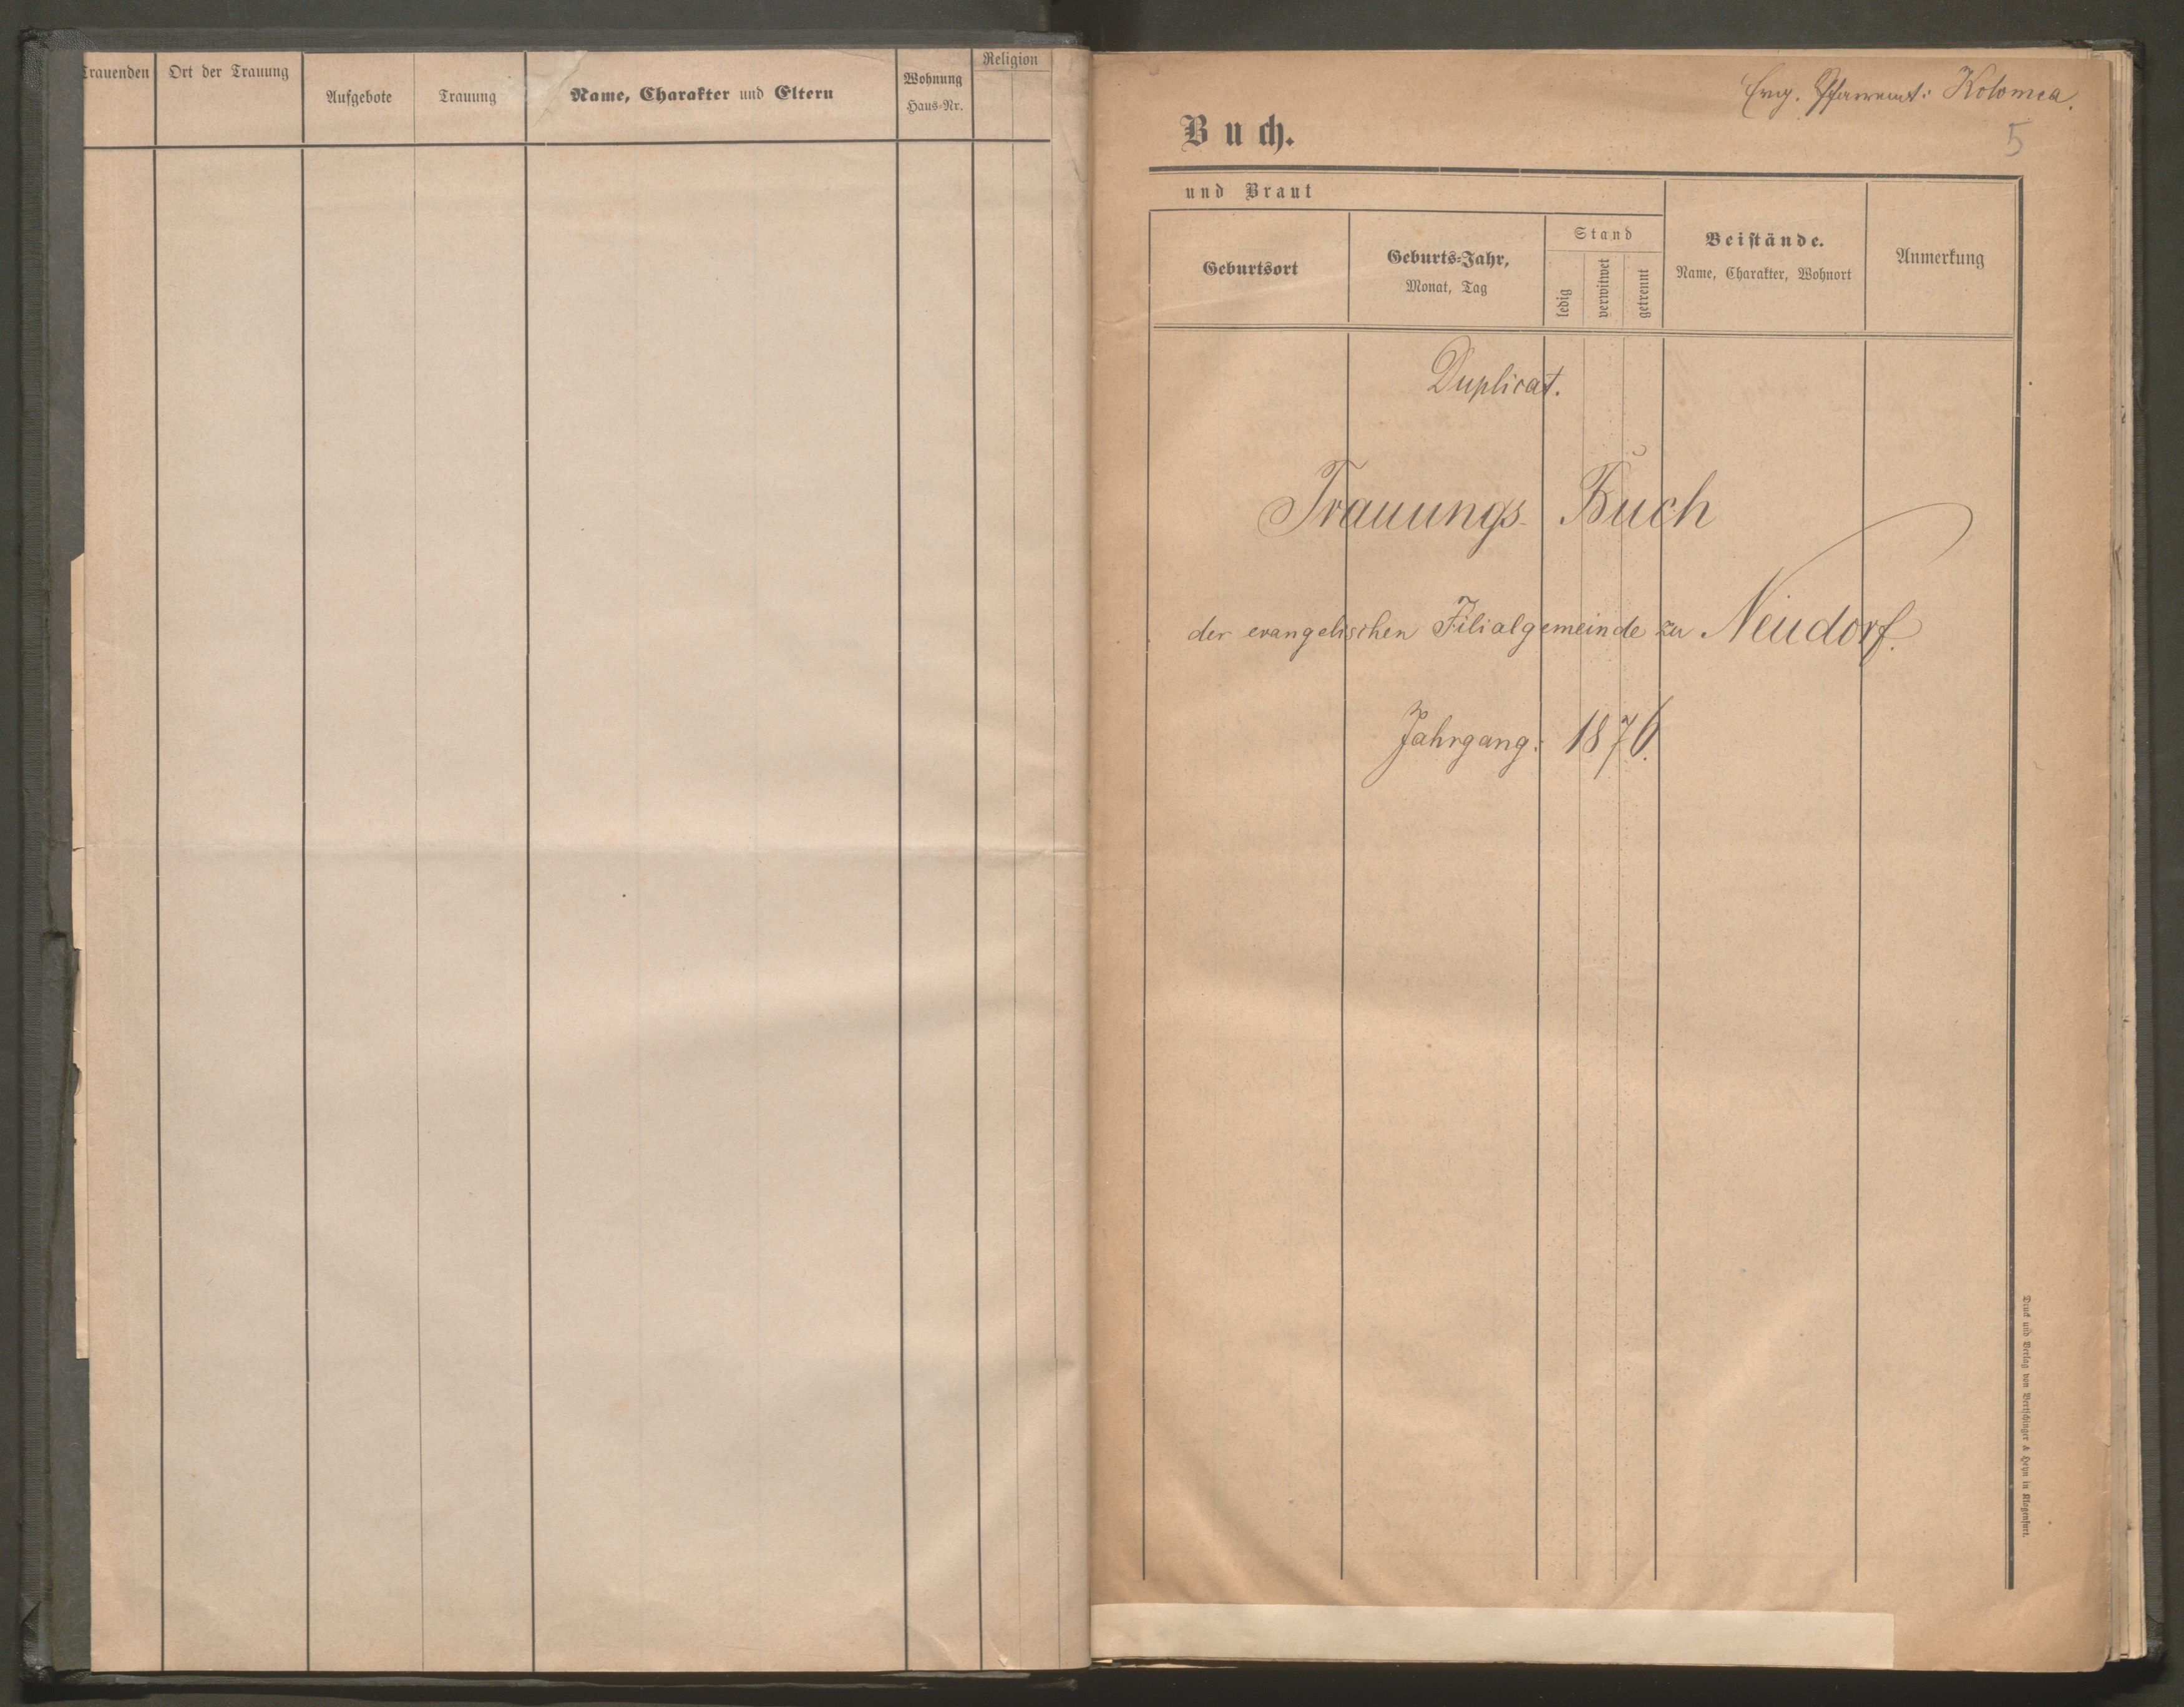 Trauenden
Ort der Trauung
Aufgebote
Trauung
Name, Charakter und Eltern
Wohnung
Haus-Nr.
Religion
Evg. Pfarramt: Kolomea.
5
Buch.
und Braut
Geburtsort
Geburts-Jahr,
Monat, Tag
Stand
ledig
verwitwet
getrennt
Beistände.
Name, Charakter, Wohnort
Anmerkung
Duplicat.
Trauungs-Buch
der evangelischen Filialgemeinde zu Neudorf.
Jahrgang: 1876.
Druck und Verlag von Bertschinger & Heyn in Klagenfurt.